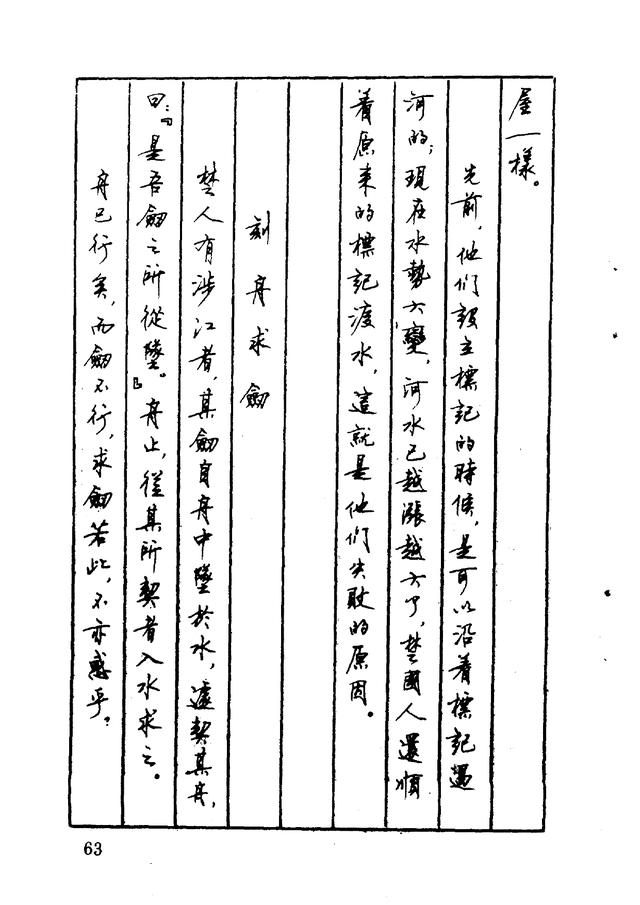 屋一樣。
先前，他们設立標記的時候，是可以沿着標記過
河的；現在水勢大變，河水已越漲越大了，楚國人還順
着原来的標記渡水，這就是他们失敗的原因。
刻舟求劍
楚人有涉江者，其劍自舟中墜於水，遽契其舟，
曰：『是吾劍之所從墜。』舟止，從其所契者入水求之。
舟已行矣，而劍不行，求劍若此，不亦惑乎？
63